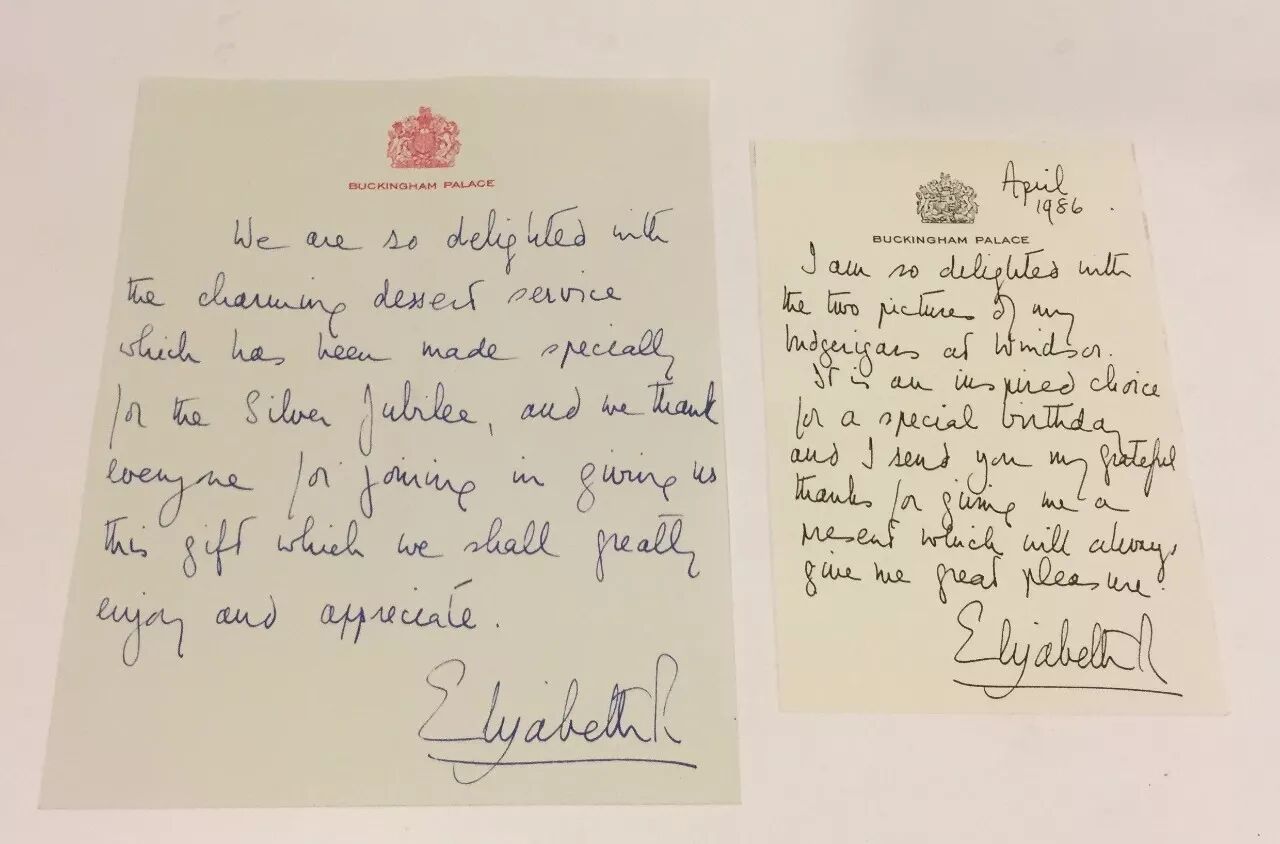 BUCKINGHAM PALACE
We are so delighted with
the charming dessert service
which has been made specially
for the Silver Jubilee, and we thank
everyone for joining in giving us
this gift which we shall greatly
enjoy and appreciate.
Elizabeth R
April
1986.
BUCKINGHAM PALACE
I am so delighted with
the two pictures of my
budgerigars at Windsor.
It is an inspired choice
for a special birthday
and I send you my grateful
thanks for giving me a
present which will always
give me great pleasure.
Elizabeth R